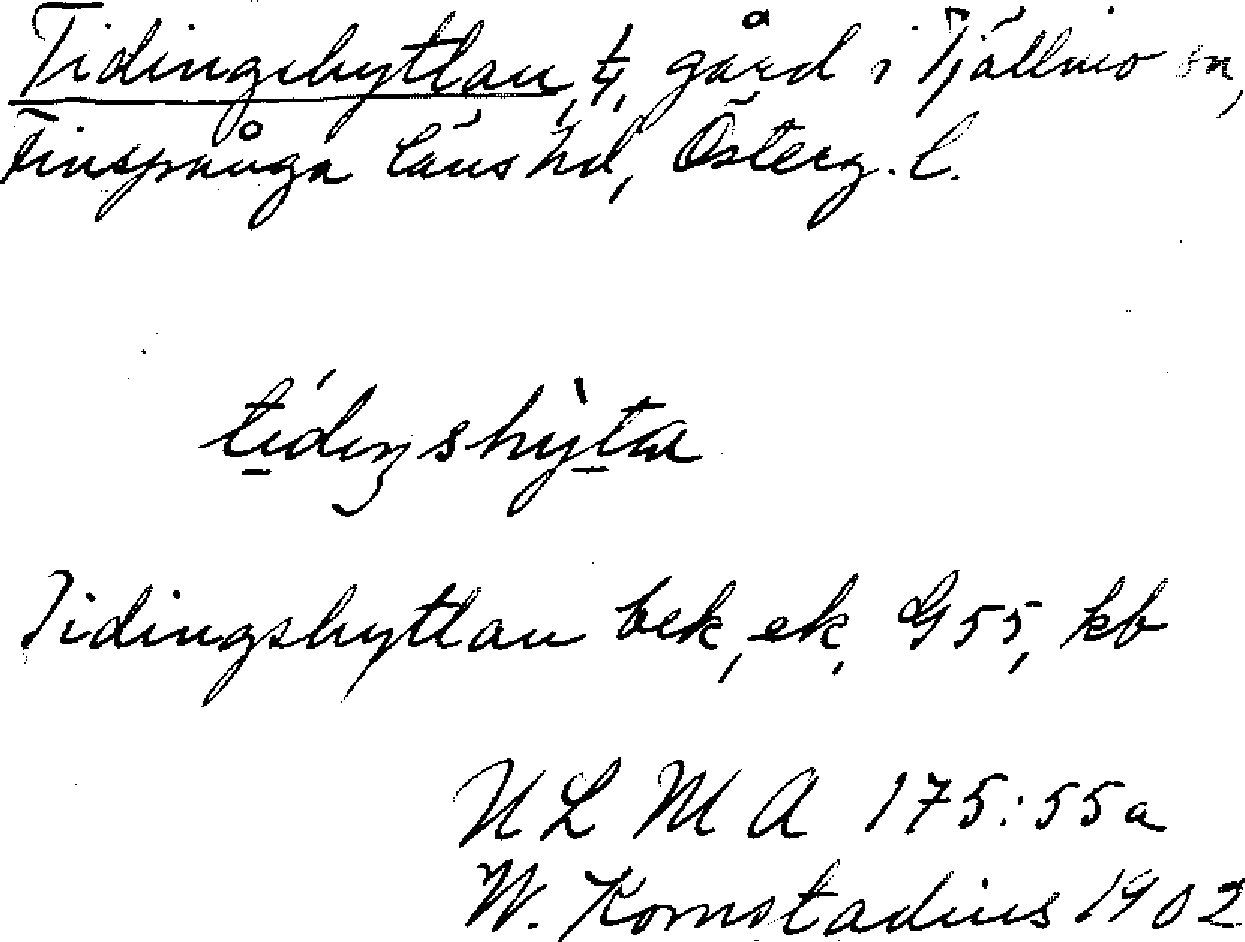 Tidingshyttan, 1/4, gård i Tjällmo sn,
Finspånga läns hd, Österg. l.
tídiŋshỳta
Tidingshyttan bek, ek, G55, kb
ULMA 175:55a
W. Kornstadius 1902